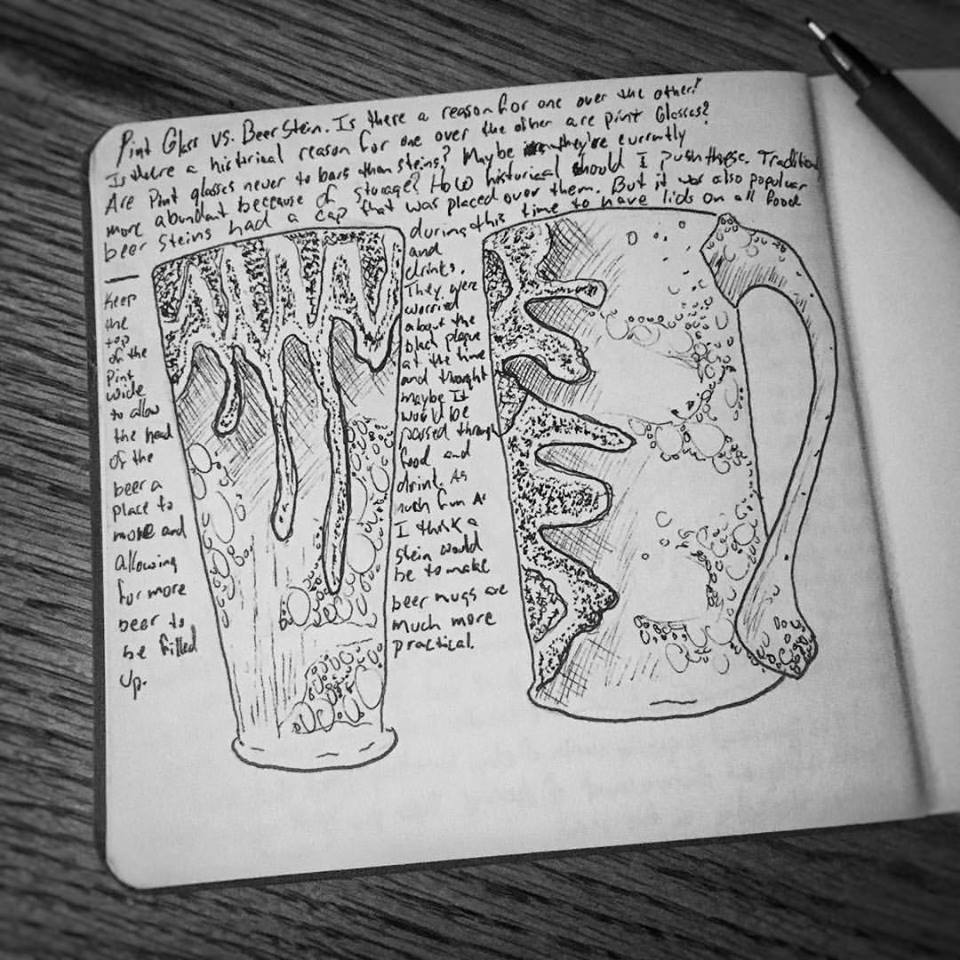 Pint Glass vs. Beer Stein. Is there a reason for one over the other?
Is there a historical reason for one over the other are pint Glasses?
Are Pint glasses never to bars than steins? Maybe they're currently
more abundant because of storage? How historical should I push these. Tradition
beer steins had a cap that was placed over them. But it was also popular
during this time to have lids on all food
and
drinks.
They were
worried
about the
black plague
at the time
and thought
maybe it
would be
passed through
food and
drink. As
much fun As
I think a
stein would
be to make
beer mugs are
much more
practical.
Keep
the
top
of the
pint
wide
to allow
the head
of the
beer a
place to
more and
allowing
for more
beer to
be filled
up.